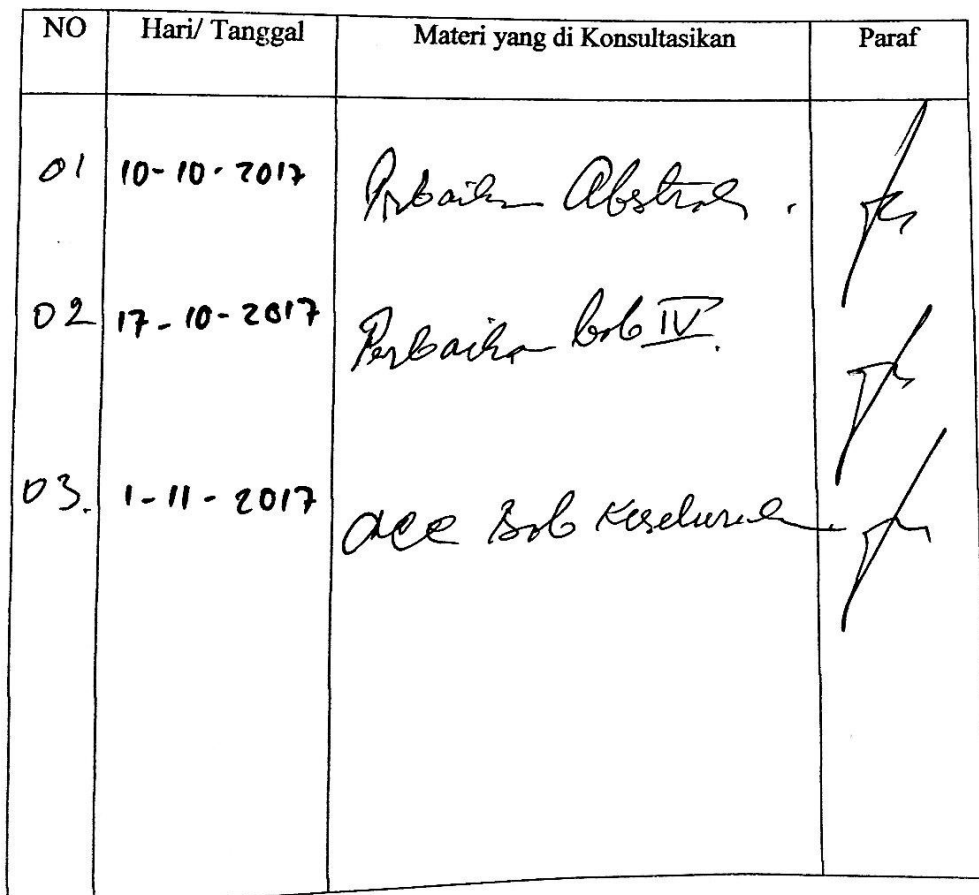 NO Hari/ Tanggal Materi yang di Konsultasikan Paraf
01 10-10-2017 Perbaikan Abstrak.
02 17-10-2017 Perbaikan bab IV.
03. 1-11-2017 acc Bab Keseluruhan